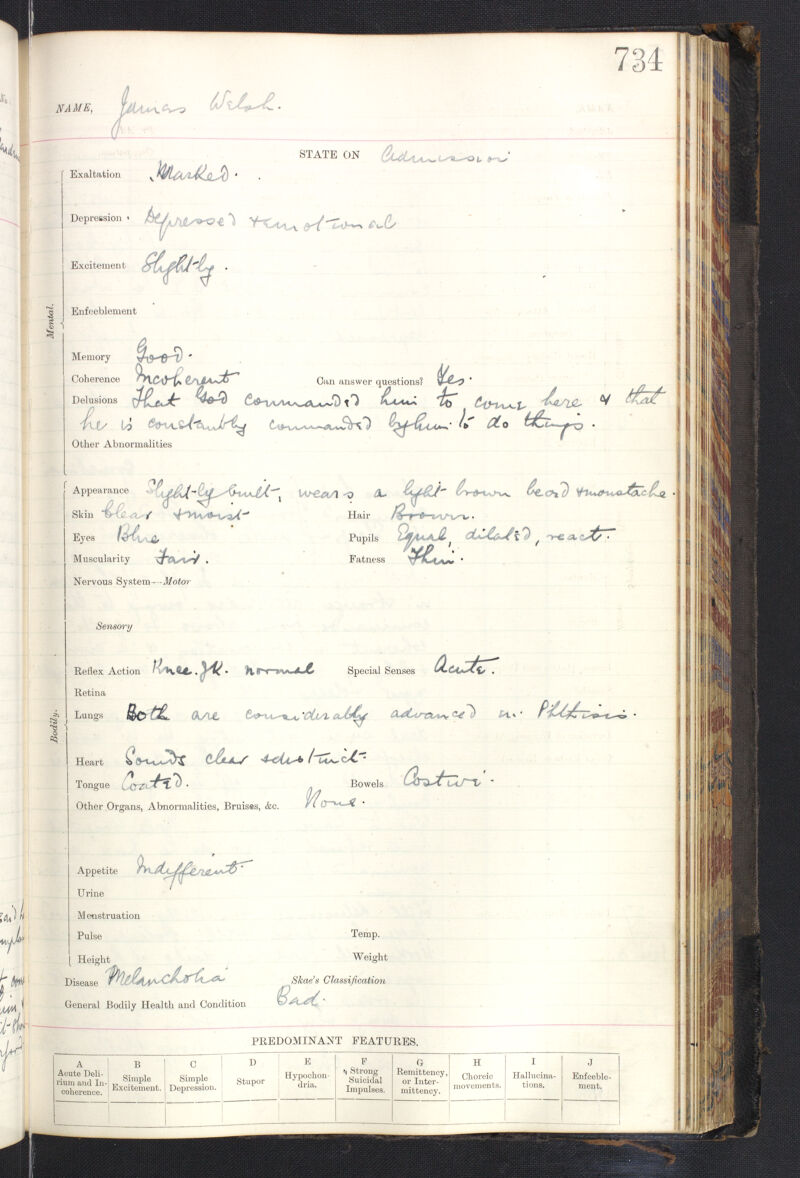 734
NAME, James Welsh.
STATE ON Admission
Mental.
Exaltation Masked.
Depression Depressed & emotional
Excitement Slightly.
Enfeeblement
Memory Good.
Coherence Incoherent Can answer questions? Yes.
Delusions That God commanded him to come here & that
he is constantly commanded by him to do things.
Other Abnormalities
Bodily.
Appearance Slightly built, wears a light brown beard & moustache.
Skin Clear & moist Hair Brown.
Eyes Blue Pupils Equal, dilated, react.
Muscularity Fair. Fatness Thin.
Nervous System—Motor
Sensory
Reflex Action Knee. JK. normal Special Senses Acute.
Retina
Lungs Both are considerably advanced in Phthisis.
Heart Sounds clear & distinct.
Tongue Coated. Bowels Costive.
Other Organs, Abnormalities, Bruises, &c. None.
Appetite Indifferent.
Urine
Menstruation
Pulse Temp.
Height Weight
Disease Melancholia Skae's Classification
General Bodily Health and Condition Bad.
PREDOMINANT FEATURES.
A B C D E F G H I J
Acute Deli-
rium and In-
coherence.
Simple
Excitement.
Simple
Depression.
Stupor
Hypochon-
dria.
Strong
Suicidal
Impulses.
Remittency,
or Inter-
mittency.
Choreic
movements.
Hallucina-
tions.
Enfeeble-
ment.